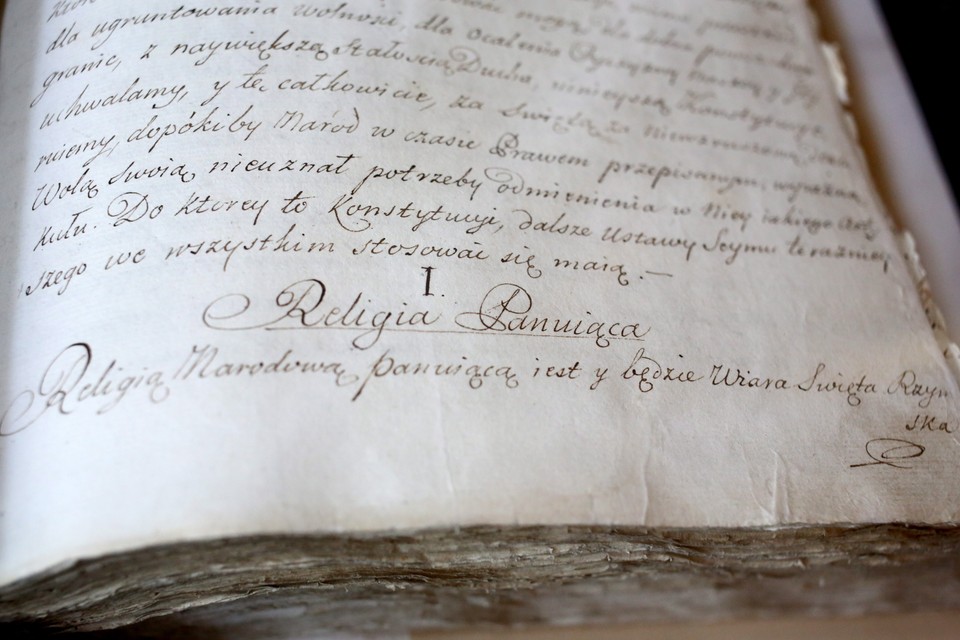 dla ugruntowania wolności, dla ocalenia Oyczyzny naszey y Jey
granic, z największą stałością Ducha, ninieyszą Konstytucyą
uchwalamy, y tę całkowicie, za Świętą, za niewzruszoną
ruiemy, dopókiby Naród w czasie Prawem przepisanym, wyraźną
Wolą swoią nieuznał potrzeby odmienienia w Niey iakiego Arty
kułu. Do ktorey to Konstytucyi, dalsze Ustawy Seymu teraźniey
szego we wszystkim stosować się maią.—
I.
Religia Panuiąca
Religią Narodową panuiącą iest y będzie Wiara Święta Rzym
ska